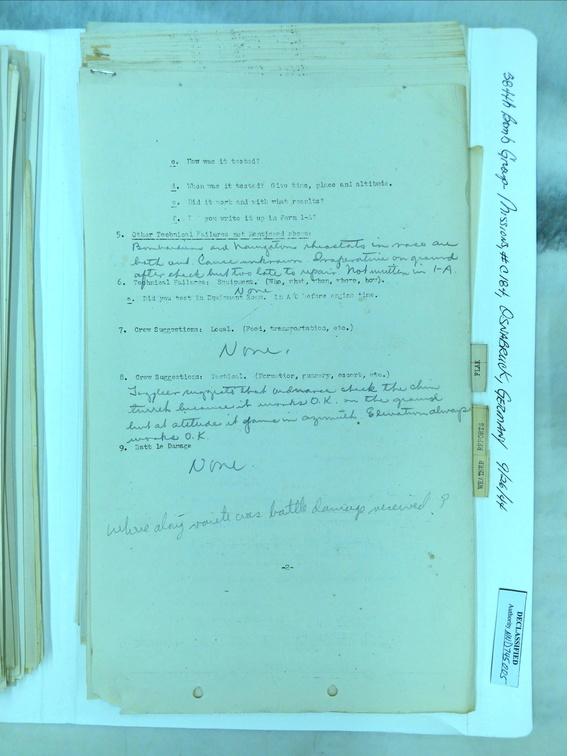 c. How was it tested?
d. When was it tested? Give time, place and altitude.
e. Did it work and with what results?
f. Did you write it up in Form 1-A?
5. Other Technical Failures not Mentioned above:
Bombardiers and Navigators rheostats in nose are
both out. Cause unknown. Inoperative on ground
after check but two late to repair. Not written in 1-A.
6. Technical Failures: Equipment. (Who, what, when, where, how).
None
a. Did you test in Equipment Room. in A/C before engine time.
7. Crew Suggestions: Local. (Food, transportation, etc.)
None.
8. Crew Suggestions: Tactical. (Formation, gunnery, escort, etc.)
Toggleer suggests that ordnance check the chin
turret because it works O.K. on the ground
but at altitude it jams in azimuth. Elevation always
works O.K.
9. Batt le Damage
None.
Where along route was battle damage received?
-2-
384th Bomb Group, Missions # C184, OSNABRUCK, GERMANY 9/26/44
DECLASSIFIED
Authority NND 745005